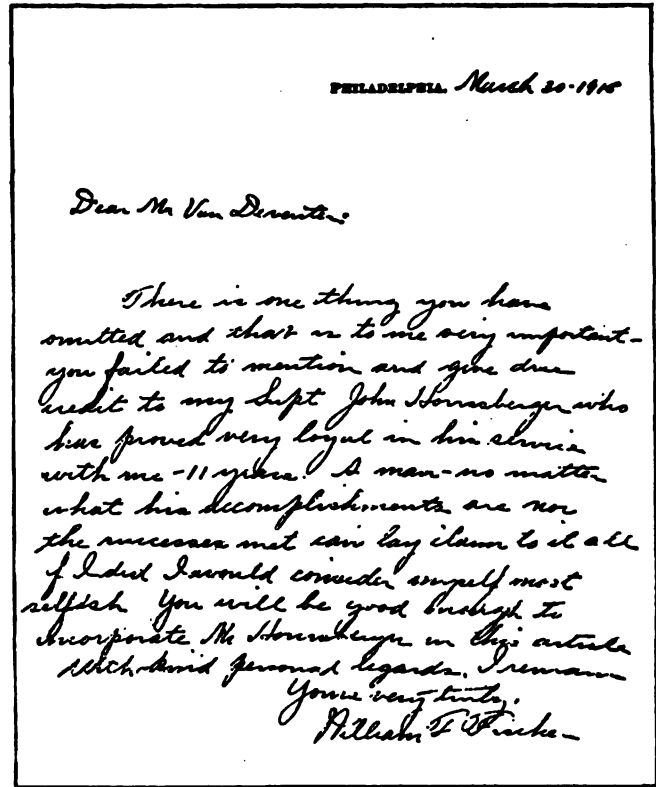 PHILADELPHIA. March 30-1915
Dear Mr Van Deventer:
There is one thing you have
omitted and that is to me very important-
you failed to mention and give due
credit to my Supt John Hounsberger who
has proved very loyal in his service
with me -11 years. A man-no matter
what his accomplishments are nor
the successes met can lay claim to it all
if I did I would consider myself most
selfish You will be good enough to
incorporate Mr Hounsberger in this article
With kind personal regards. I remain
Yours very truly.
William F Fischer